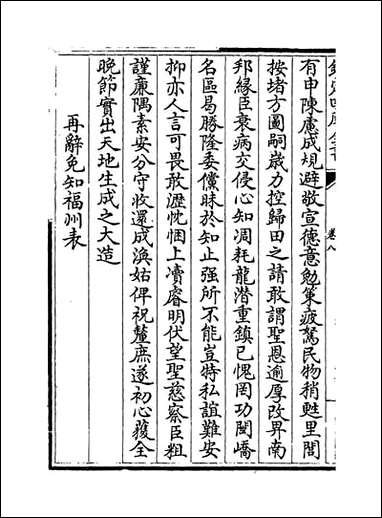 卷八
有申陳慮成規避敬宣德意勉策疲駑民物稍甦里閭
按堵方圖嗣歲力控歸田之請敢謂聖恩逾厚改畀南
邦緣臣衰病交侵心知凋耗龍潛重鎮已愧罔功閩嶠
名區曷勝隆委儻昧於知止强所不能豈特私誼難安
抑亦人言可畏敢瀝忱悃上凟睿明伏望聖慈察臣粗
謹廉隅素安分守收還成渙姑俾祝釐庶遂初心獲全
晚節實出天地生成之大造
再辭免知福州表